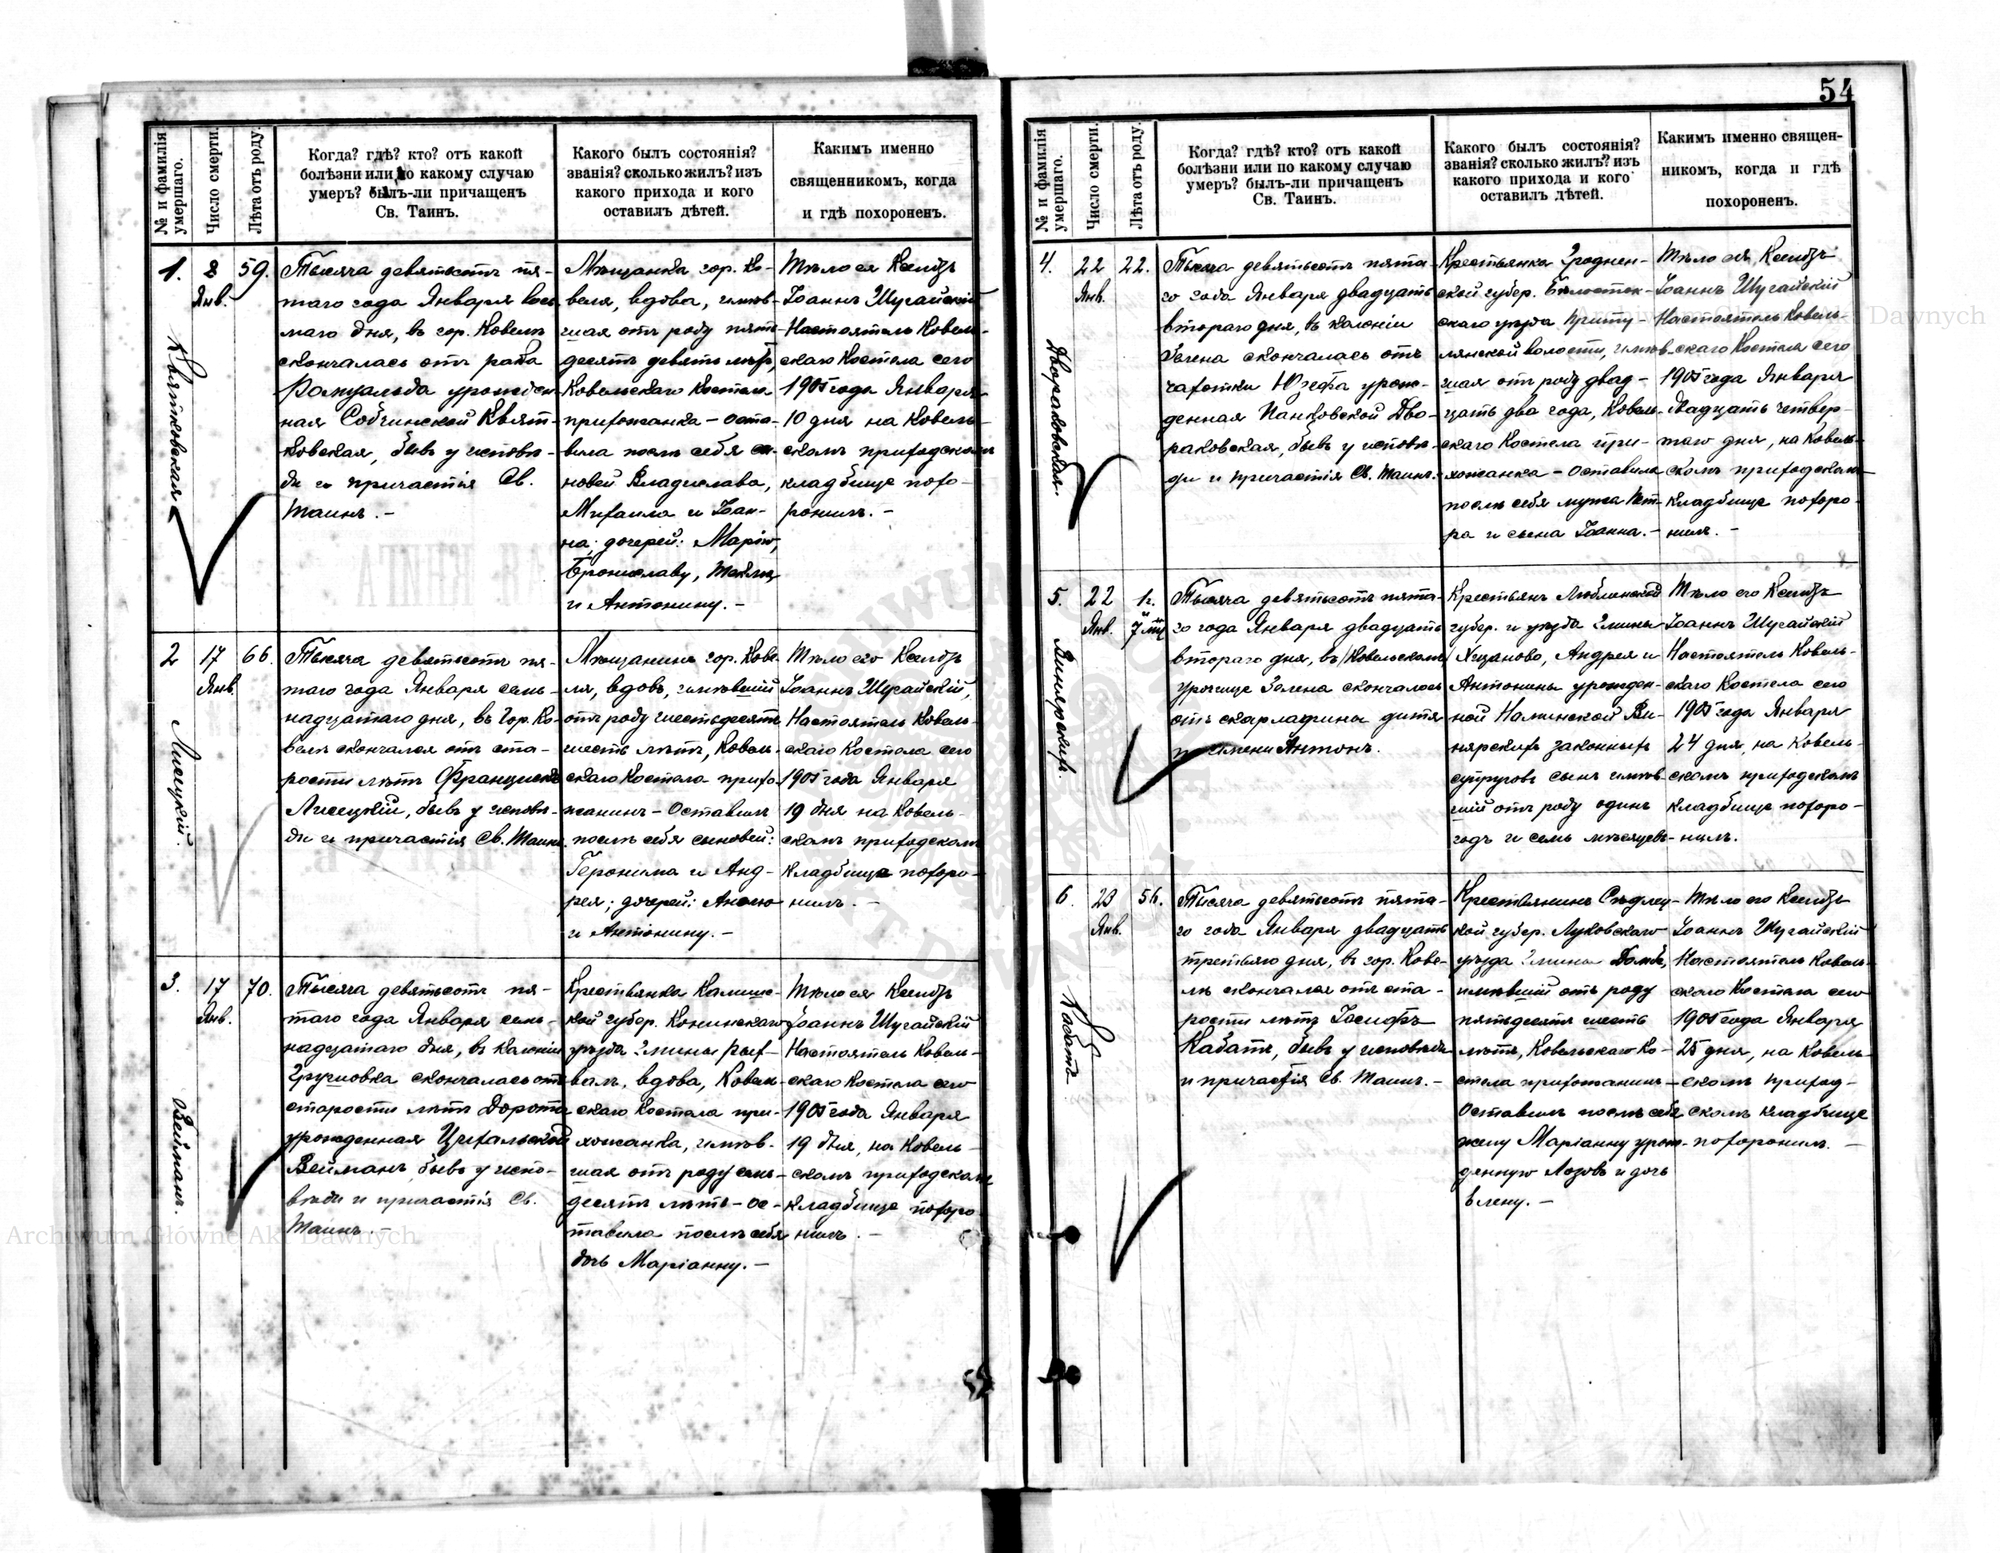 54
№ и фамилія умершаго.
Число смерти.
Лѣта отъ роду.
Когда? гдѣ? кто? отъ какой
болѣзни или по какому случаю
умеръ? былъ-ли причащенъ
Св. Таинъ.
Какого былъ состоянія?
званія? сколько жилъ? изъ
какого прихода и кого
оставилъ дѣтей.
Какимъ именно
священникомъ, когда
и гдѣ похороненъ.
1.
8
Янв.
59.
Квятковская
Тысяча девятьсотъ пя-
таго года Января вось
маго дня, въ гор. Ковелѣ
скончалась отъ рака
Ромуальда урожден
ная Собчинской Квят-
ковская, бывъ у исповѣ-
ди и причастія Св.
Таинъ. –
Мѣщанка гор. Ко-
веля, вдова, имѣв-
шая отъ роду пять-
десятъ девять лѣтъ,
Ковельскаго Костела
прихожанка – оста-
вила послѣ себя сы-
новей Владислава,
Михаила и Іоан-
на; дочерей: Марію,
Брониславу, Теклю
и Антонину. –
Тѣло ея Ксендзъ
Іоаннъ Шугайскій
Настоятель Ковель-
скаго Костела сего
1905 года Января
10 дня на Ковель-
скомъ приходскомъ
кладбище похо-
ронилъ. –
2
17
Янв.
66.
Лисецкій.
Тысяча девятьсотъ пя-
таго года Января семь-
надцатаго дня, въ гор. Ко-
велѣ скончался отъ ста-
рости лѣтъ Францискъ
Лисецкій, бывъ у исповѣ-
ди и причастія Св. Таинъ.
Мѣщанинъ гор. Кове-
ля, вдовъ, имѣвшій
отъ роду шестьдесятъ
шесть лѣтъ, Ковель-
скаго Костела прихо-
жанинъ – Оставилъ
послѣ себя сыновей:
Геронима и Анд-
рея; дочерей: Анелю
и Антонину. –
Тѣло его Ксендзъ
Іоаннъ Шугайскій,
Настоятель Ковель-
скаго Костела сего
1905 года Января
19 дня на Ковель-
скомъ приходскомъ
кладбище похоро-
нилъ. –
3.
17
Янв.
70.
Вейманъ.
Тысяча девятьсотъ пя-
таго года Января семь-
надцатаго дня, въ колоніи
скончалась отъ
старости лѣтъ Дорота
урожденная
Вейманъ, бывъ у испо-
вѣди и причастія Св.
Таинъ. –
Крестьянка Калишс-
кой губер. Конинскаго
уѣзда Гмины Рых-
валъ, вдова, Ковель-
скаго Костела при-
хожанка, имѣв-
шая отъ роду семь-
десятъ лѣтъ – ос-
тавила послѣ себя
дочь Маріанну. –
Тѣло ея Ксендзъ
Іоаннъ Шугайскій
Настоятель Ковель-
скаго Костела сего
1905 года Января
19 дня, на Ковель-
скомъ приходскомъ
кладбище похоро-
нилъ. –
№ и фамилія умершаго.
Число смерти.
Лѣта отъ роду.
Когда? гдѣ? кто? отъ какой
болѣзни или по какому случаю
умеръ? былъ-ли причащенъ
Св. Таинъ.
Какого былъ состоянія?
званія? сколько жилъ? изъ
какого прихода и кого
оставилъ дѣтей.
Какимъ именно священ-
никомъ, когда и гдѣ
похороненъ.
4.
22
Янв.
22.
Двораковская.
Тысяча девятьсотъ пята-
го года Января двадцать
втораго дня, въ колоніи
Зелена скончалась отъ
чахотки Юзефа урож-
денная Панковской Дво-
раковская, бывъ у исповѣ-
ди и причастія Св. Таинъ.
Крестьянка Гроднен-
ской губер. Бѣлосток-
скаго уѣзда
волости, имѣв-
шая отъ роду двад-
цать два года, Ковель-
скаго Костела при-
хожанка – оставила
послѣ себя мужа Пет-
ра и сына Іоанна. –
Тѣло ея, Ксендзъ
Іоаннъ Шугайскій
Настоятель Ковель-
скаго Костела сего
1905 года Января
двадцать четвер-
таго дня, на Ковель-
скомъ приходскомъ
кладбище похоро-
нилъ. –
5.
22
Янв.
1 г.
и
7 мц
Винярскихъ.
Тысяча девятьсотъ пята-
го года Января двадцать
втораго дня, въ Ковельскомъ
урочище Зелена скончалось
отъ скарлатины дитя
по имени Антонъ.
Крестьянъ Люблинской
губер. и уѣзда Гмины
Андрея и
Антонины урожден-
ной Ви-
нярскихъ законныхъ
супруговъ сынъ имѣв-
шій отъ роду одинъ
годъ и семь мѣсяцевъ.
Тѣло его Ксендзъ
Іоаннъ Шугайскій
Настоятель Ковель-
скаго Костела сего
1905 года Января
24 дня, на Ковель-
скомъ приходскомъ
кладбище похоро-
нилъ.
6.
23
Янв.
56.
Кабатъ
Тысяча девятьсотъ пята-
го года Января двадцать
третьяго дня, въ гор. Кове-
лѣ скончался отъ ста-
рости лѣтъ Іосифъ
Кабатъ, бывъ у исповѣди
и причастія Св. Таинъ. –
Крестьянинъ Сѣдлец-
кой губер. Луковскаго
уѣзда Гмины
имѣвшій отъ роду
пятьдесятъ шесть
лѣтъ, Ковельскаго Ко-
стела прихожанинъ –
Оставилъ послѣ себя
жену Маріанну урож-
денную Лозовъ и дочь
Елену. –
Тѣло его Ксендзъ
Іоаннъ Шугайскій
Настоятель Ковель-
скаго Костела сего
1905 года Января
25 дня, на Ковель-
скомъ приход-
скомъ кладбище
похоронилъ. –
Archiwum Główne Akt Dawnych